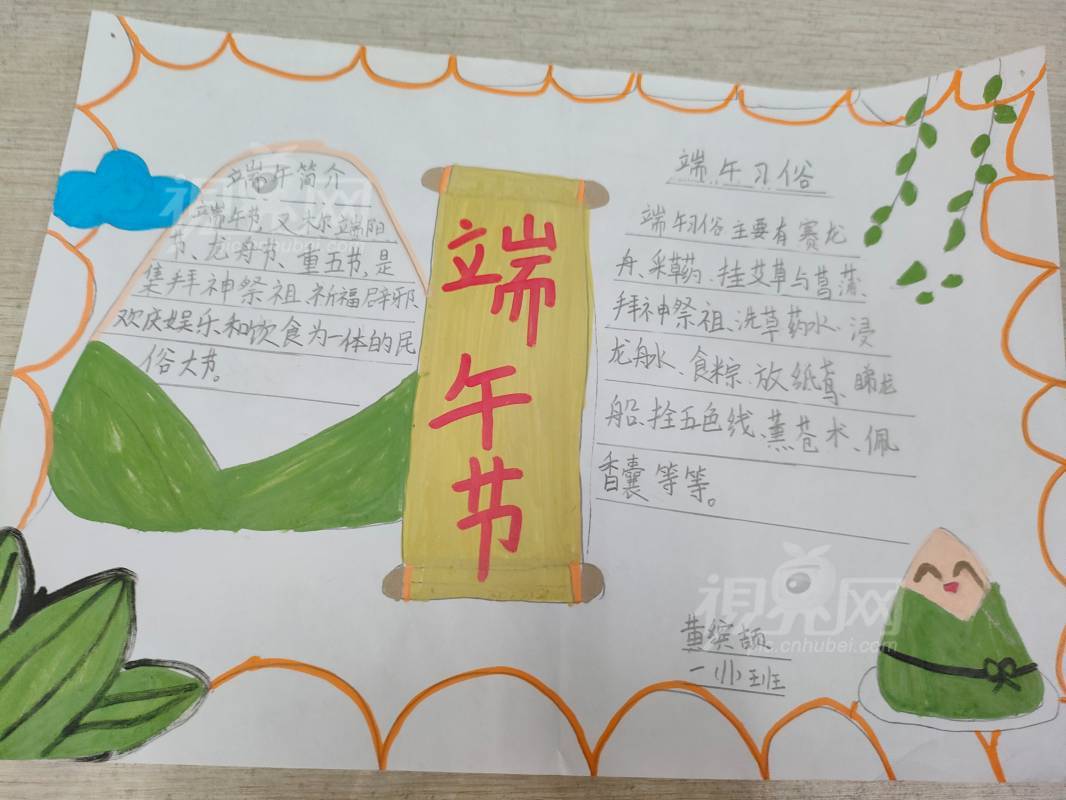 端午简介
端午节,又称端阳
节、龙舟节、重五节,是
集拜神祭祖、祈福辟邪、
欢庆娱乐和饮食为一体的民
俗大节。
端午节
端午习俗
端午习俗主要有赛龙
舟、采草药、挂艾草与菖蒲、
拜神祭祖、洗草药水、浸
龙舟水、食粽、放纸鸢、睇龙
船、拴五色线、薰苍术、佩
香囊等等。
黄缤颉
班
视界网
cnhubei.com
视界网
cnhubei.com